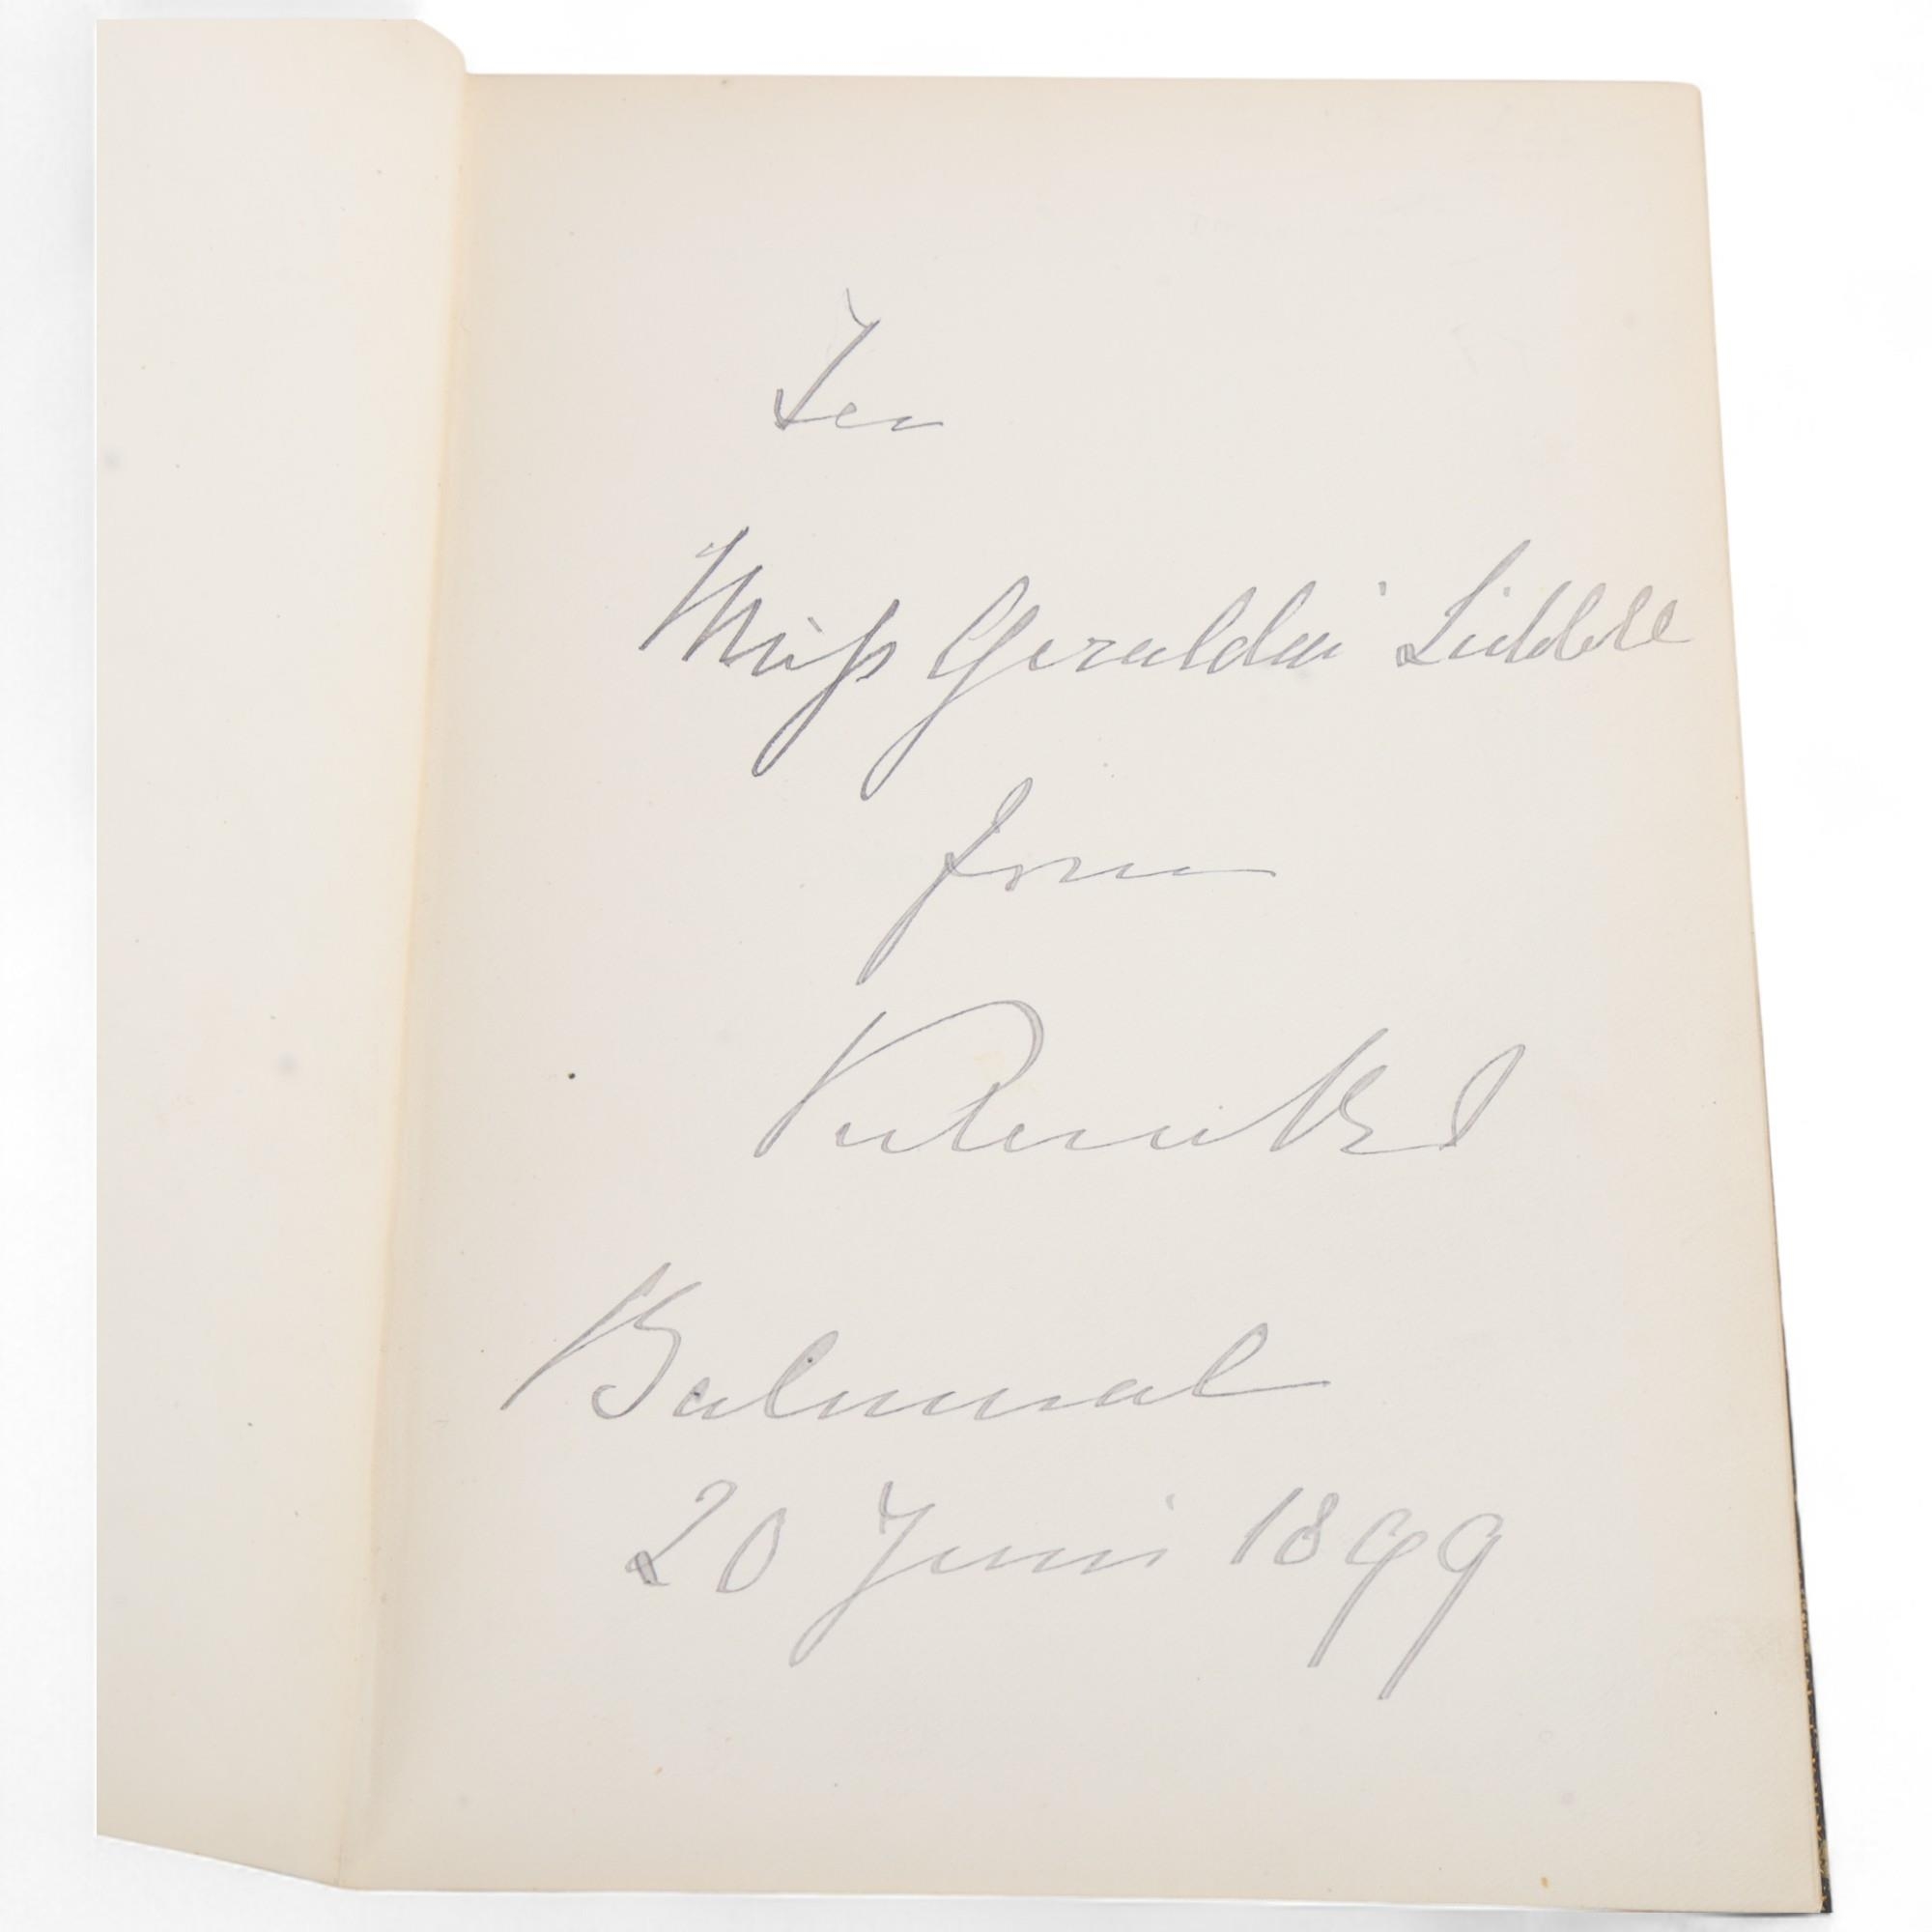 To
Miss Geraldin Liddell
from
Victoria RI
Balmoral
20 Juni 1899